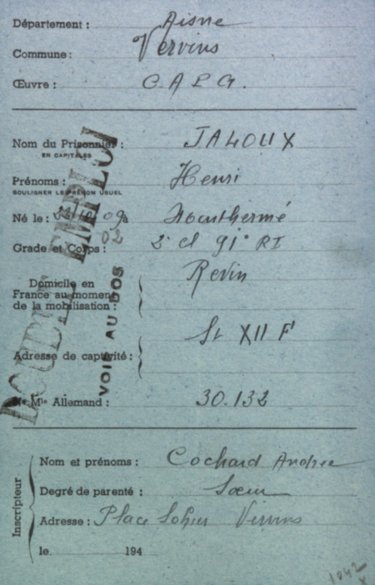 Département : Aisne
Commune : Vervins
Œuvre : C.A.P.G.
Nom du Prisonnier : JALOUX
EN CAPITALES
Prénoms : Henri
SOULIGNER LE PRÉNOM USUEL
Né le : à Monthermé
02
Grade et Corps : 2e cl 91e RI
Domicile en
France au moment
de la mobilisation : Revin
Adresse de captivité : St XII F
Mle Allemand : 30.132
DOUBLE EMPLOI
VOIR AU DOS
Inscripteur
Nom et prénoms : Cochard Andrée
Degré de parenté : Sœur
Adresse : Place Sohier Vervins
le 194
1042